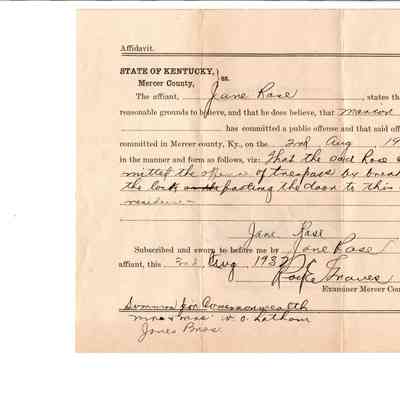 Affidavit.
STATE OF KENTUCKY,
Mercer County, ss.
The affiant, Jane Rose, states tha
reasonable grounds to believe, and that he does believe, that
has committed a public offense and that said off
committed in Mercer county, Ky., on the 2nd Aug 19
in the manner and form as follows, viz: That the said Rose
mitted the offence of trespass by brea
the lock the door to this
residence
Jane Rose
Subscribed and sworn to before me by Jane Rose
affiant, this 2nd Aug 1932
Graves
Examiner Mercer Cou
Summon for Commonwealth
Mr & Mrs
Jones Bros